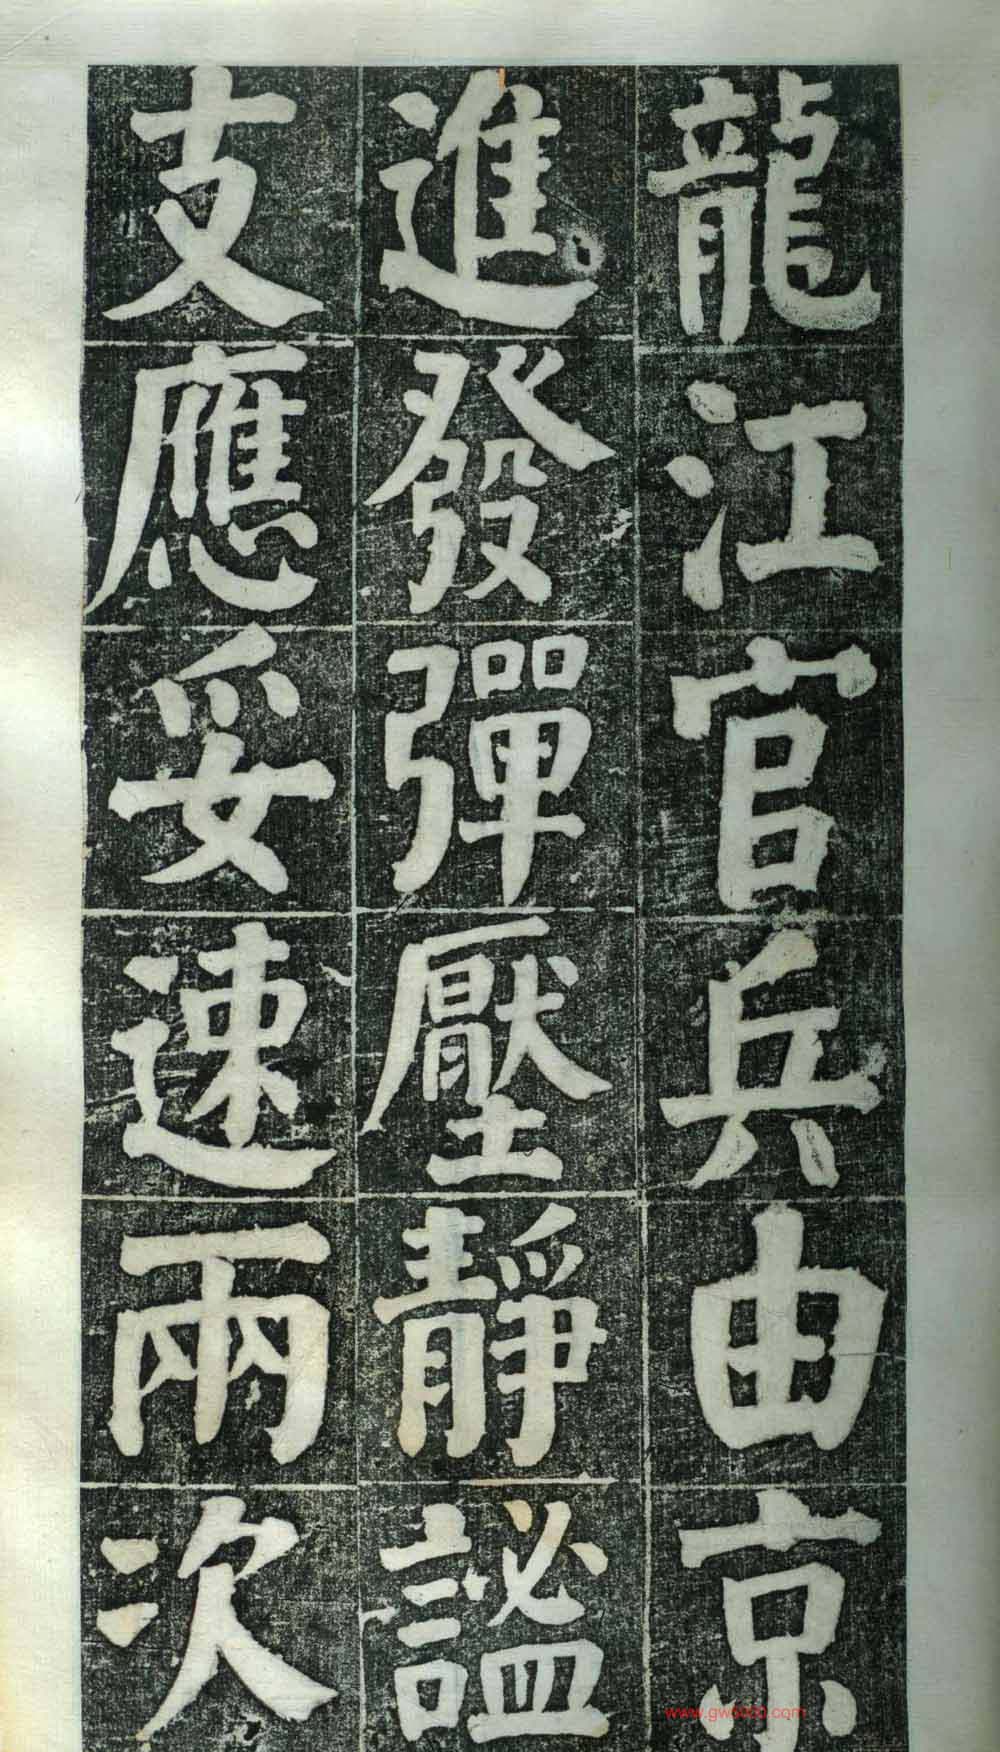 龍江官兵由京
進發彈壓靜謐
支應妥速兩次
www.gw5000.com